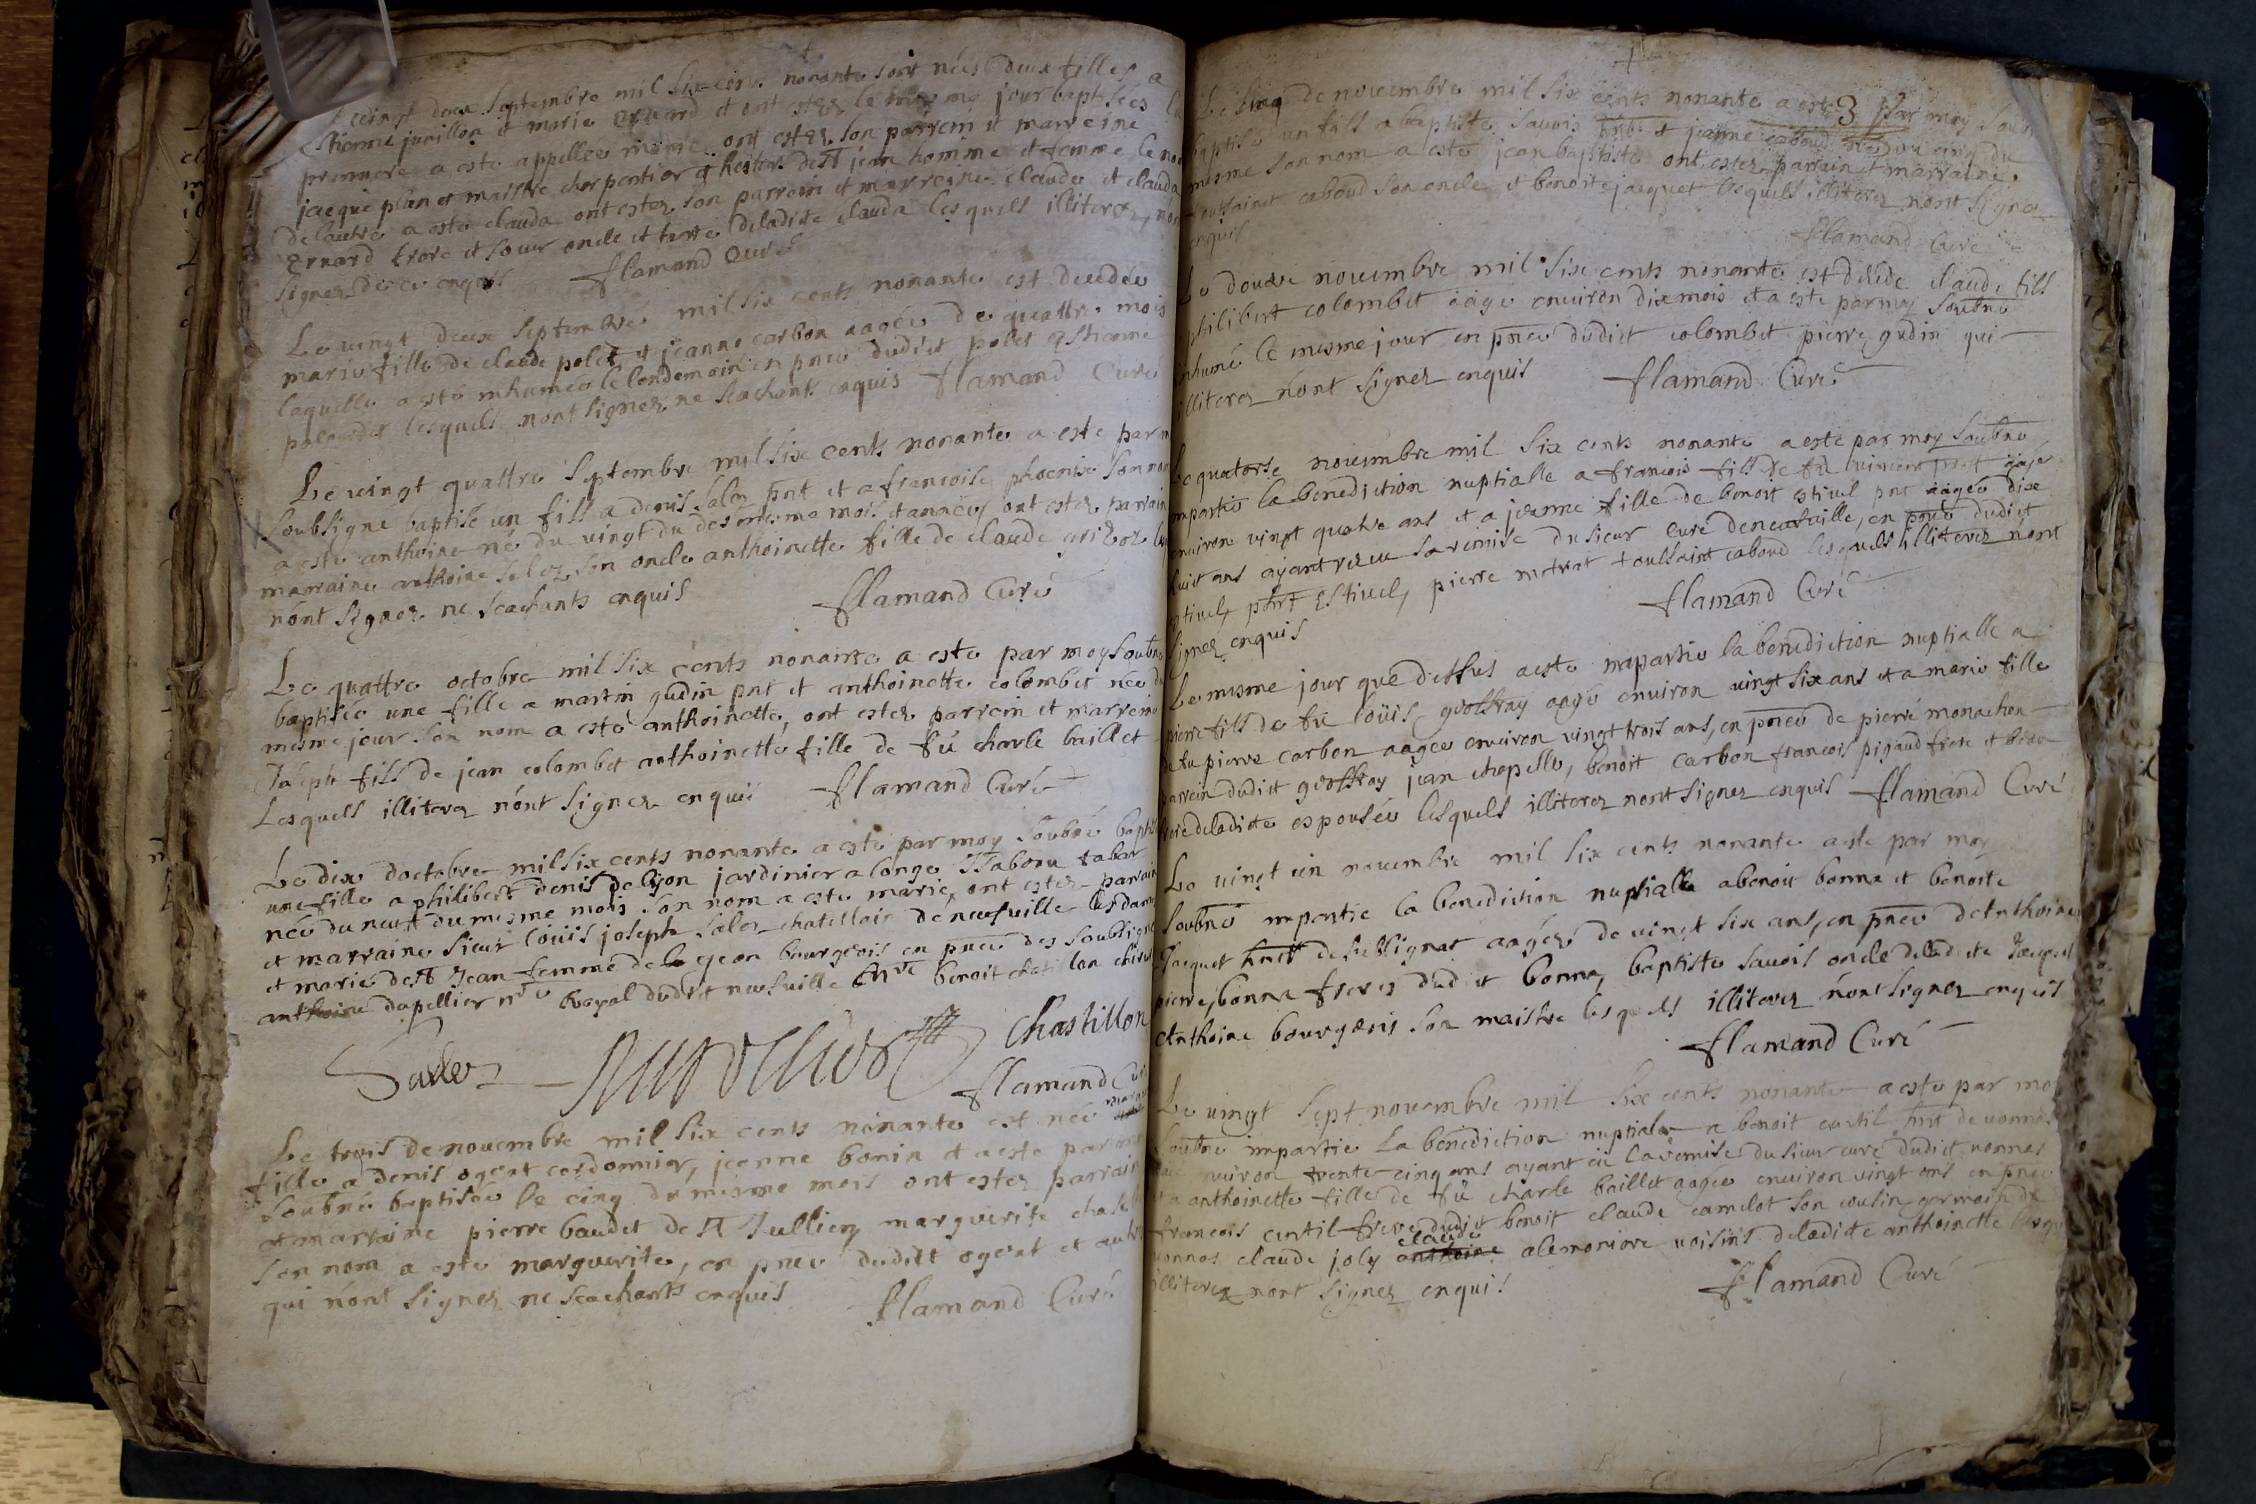 vingt deux septembre mil six cens nonante sont nées deux filles a
Estienne junillon et marie ernard et ont estez le mesme jour baptisées la
premiere a esté appellee marie ont estez son parrein et marreine
jacque plan et maistre charpentier et hester dest jean homme et femme le nom
de lautre a esté clauda ont estez son parrein et marreine claude et clauda
ernard frere et soeur oncle et tante deladicte clauda lesquels illiterez n'ont
signez de ce enquis flamand Curé
Le vingt deux septembre mil six cents nonante est decedée
marie fille de claude polet et jeanne carbon aagée de quattre mois
laquelle a esté inhumée le lendemain en pnce dudict polet estienne
lesquels n'ont signez ne scachants enquis flamand Curé
Le vingt quattre septembre mil six cents nonante a esté par m
soubsigne baptisé un fils a denis salez pnt et a francoise phoenise son nom
a esté anthoine né du vingt du des mesme mois et année ont estez parrain
marraine anthoine salez son oncle anthoinette fille de claude
n'ont signez ne scachants enquis flamand Curé
Le quattre octobre mil six cents nonante a esté par moy soubne
baptisée une fille a martin gudin pnt et anthoinette colombet née du
mesme jour son nom a esté anthoinette, ont estez parrein et marreine
Joseph fils de jean colombet anthoinette fille de fü charle baillet
Lesquels illiterez n'ont signez enquis flamand Curé
Le dix d'octobre mil six cents nonante a esté par moy soubné bapt
une fille a philibert denis de lyon jardinier a longe
née du neuf du mesme mois son nom a esté marie, ont estez parrain
et marraine sieur loüis joseph salez chatellain de neufville les dames
et marie dest Jean femme de bourgeois en pnce des soubsignez
anthoine dupellier nre royal dudict neufville Mre benoit chatillon chirur
Salez chastillon
flamand Cu
Le trois de novembre mil six cents nonante est née
fille a denis ogeat cordonnier, jeanne bonin et a esté par moy
soubné baptisée le cinq du mesme mois ont estez parrain
et marraine pierre baudet de st Jullien, marguerite
son nom a esté marguerite, en pnce dudict ogeat et autres
qui n'ont signez ne scachants enquis flamand Curé
3
Le cinq de novembre mil six cents nonante a esté par moy soub
baptisé un fils a baptiste savois et jeanne caboud cinq du
mesme son nom a esté jean baptiste ont estez parrain et marraine
toussainct caboud son oncle et benoite jacquet lesquels illiterez n'ont signez
enquis flamand Curé
Le douze novembre mil six cents nonante est décédé claude fils
philibert colombet aagé environ dix mois et a esté par moy soubné
inhumé le mesme jour en pnce dudict colombet pierre gudin qui
illiterez n'ont signez enquis flamand Curé
Le quatorse novembre mil six cents nonante a esté par moy soubné
impartie la benediction nuptialle a francois fils de fü aagé
environ vingt quatre ans et a jeanne fille de benoit estivel pnt aagée dix
huict ans ayant receu la remise du sieur curé de neufville, en pnce dudict
estivel, estivel, pierre metrat toussaint caboud lesquels illiterez n'ont
signez enquis flamand Curé
Le mesme jour que dessus a esté impartie la benediction nuptialle a
pierre fils de fü loüis geoffray aagé environ vingt six ans et a marie fille
de fü pierre carbon aagée environ vingt trois ans, en pnce de pierre monachon
parrein dudict geoffray jean chapelle, benoit carbon francois pigaud frere et beau
frere deladicte espousée lesquels illiterez n'ont signez enquis flamand Curé
Le vingt un novembre mil six cents nonante a esté par moy
soubné impartie la benediction nuptialle a benoit bonna et benoite
Jacquet aagées de vingt six ans, en pnce d'Anthoine
pierre, bonna freres dudict bonna, baptiste savois oncle deladicte Jacquet
Anthoine bourgeois son maistre lesquels illiterez n'ont signez enquis
flamand Curé
Le vingt sept novembre mil six cents nonante a esté par mo
soubné impartie la benediction nuptiale a benoit curtil hnt de vonnas
environ trente cinq ans ayant eü la remise du sieur curé dudict vonnas
a anthoinette fille de fü charle baillet aagée environ vingt ans en pnce
francois curtil frere dudict benoit claude camelot son cousin germain de
vonnas claude joly claude anthoine alemoniere voisins deladicte anthoinette lesqu
illiterez n'ont signez enquis flamand Curé